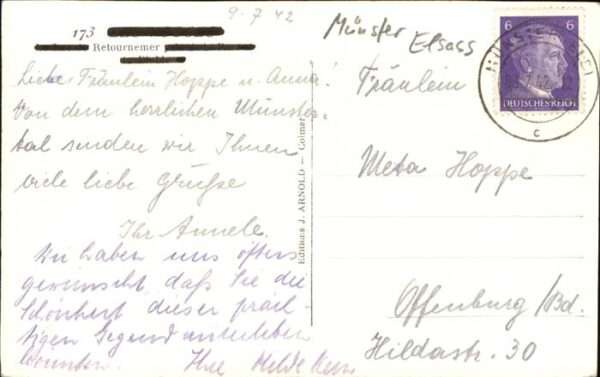 9-7 42
173
Retournemer
Liebe Fräulein Hoppe u. Anna!
Von dem herrlichen Münster-
tal senden wir Ihnen
viele liebe Grüße
Ihr Annele.
Wir haben uns öfters
gewünscht, daß Sie die
Schönheit dieser präch-
tigen Gegend miterleben
könnten. Ihre Hilde
Editions J. ARNOLD — Colmar
Münster Elsass
6 6
DEUTSCHES REICH
c
Fräulein
Meta Hoppe
Offenburg/Bd.
Hildastr. 30